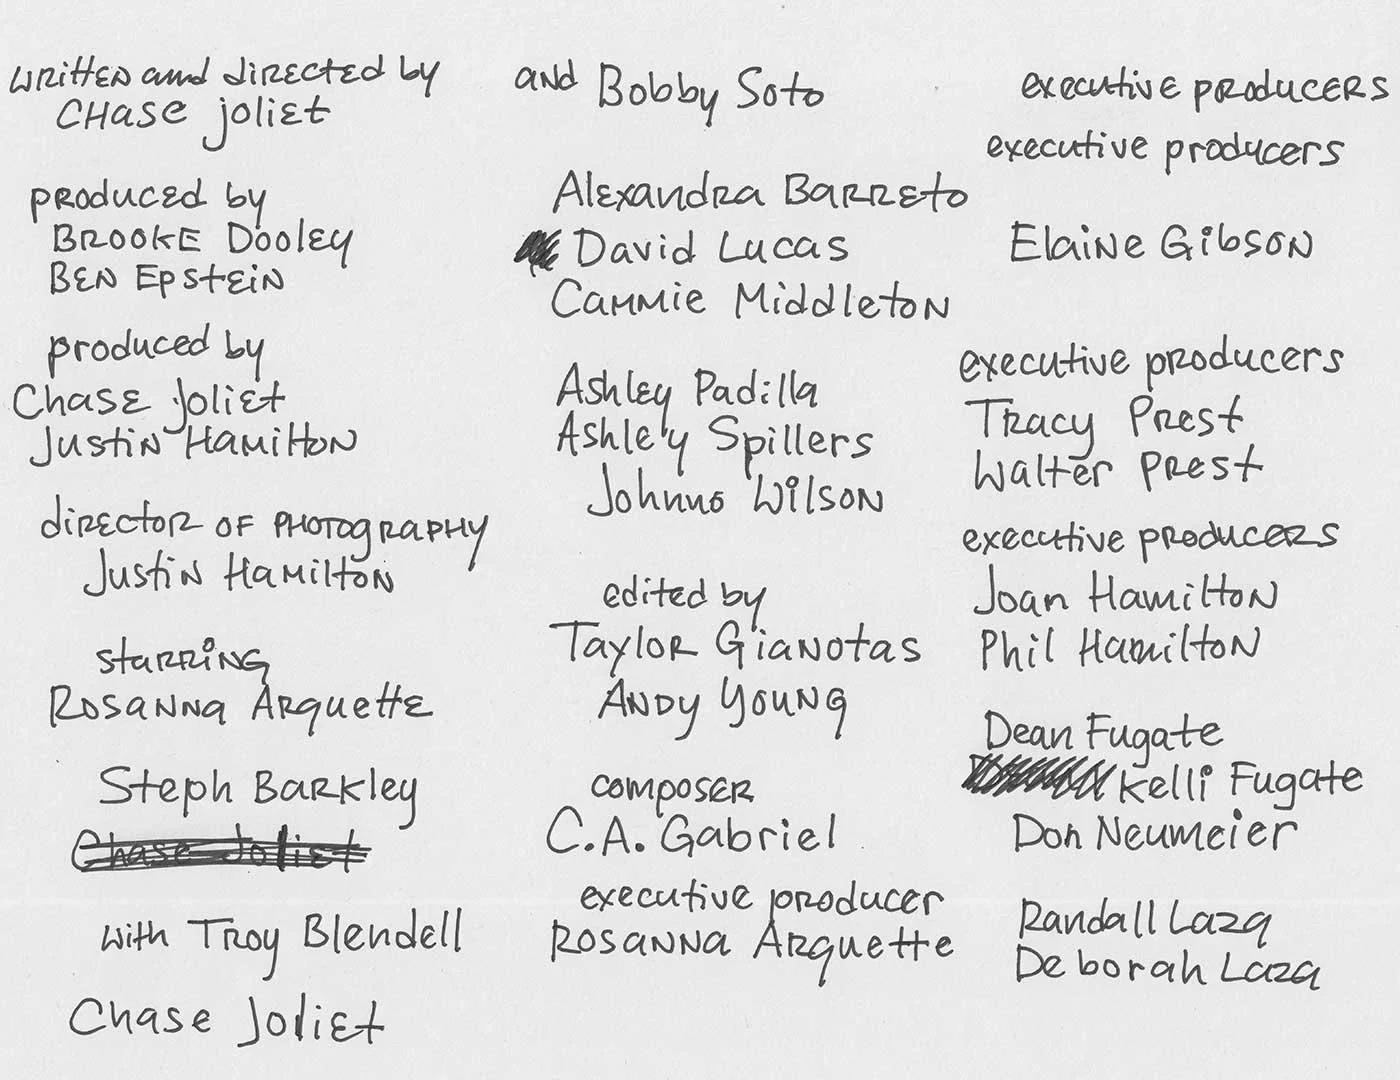 written and directed by
Chase Joliet
produced by
Brooke Dooley
Ben Epstein
produced by
Chase Joliet
Justin Hamilton
director of photography
Justin Hamilton
starring
Rosanna Arquette
Steph Barkley
Chase Joliet
with Troy Blendell
Chase Joliet
and Bobby Soto
Alexandra Barreto
David Lucas
Cammie Middleton
Ashley Padilla
Ashley Spillers
Johnno Wilson
edited by
Taylor Gianotas
Andy Young
composer
C.A. Gabriel
executive producer
Rosanna Arquette
executive producers
executive producers
Elaine Gibson
executive producers
Tracy Prest
Walter Prest
executive producers
Joan Hamilton
Phil Hamilton
Dean Fugate
Kelli Fugate
Don Neumeier
Randall Laza
Deborah Laza